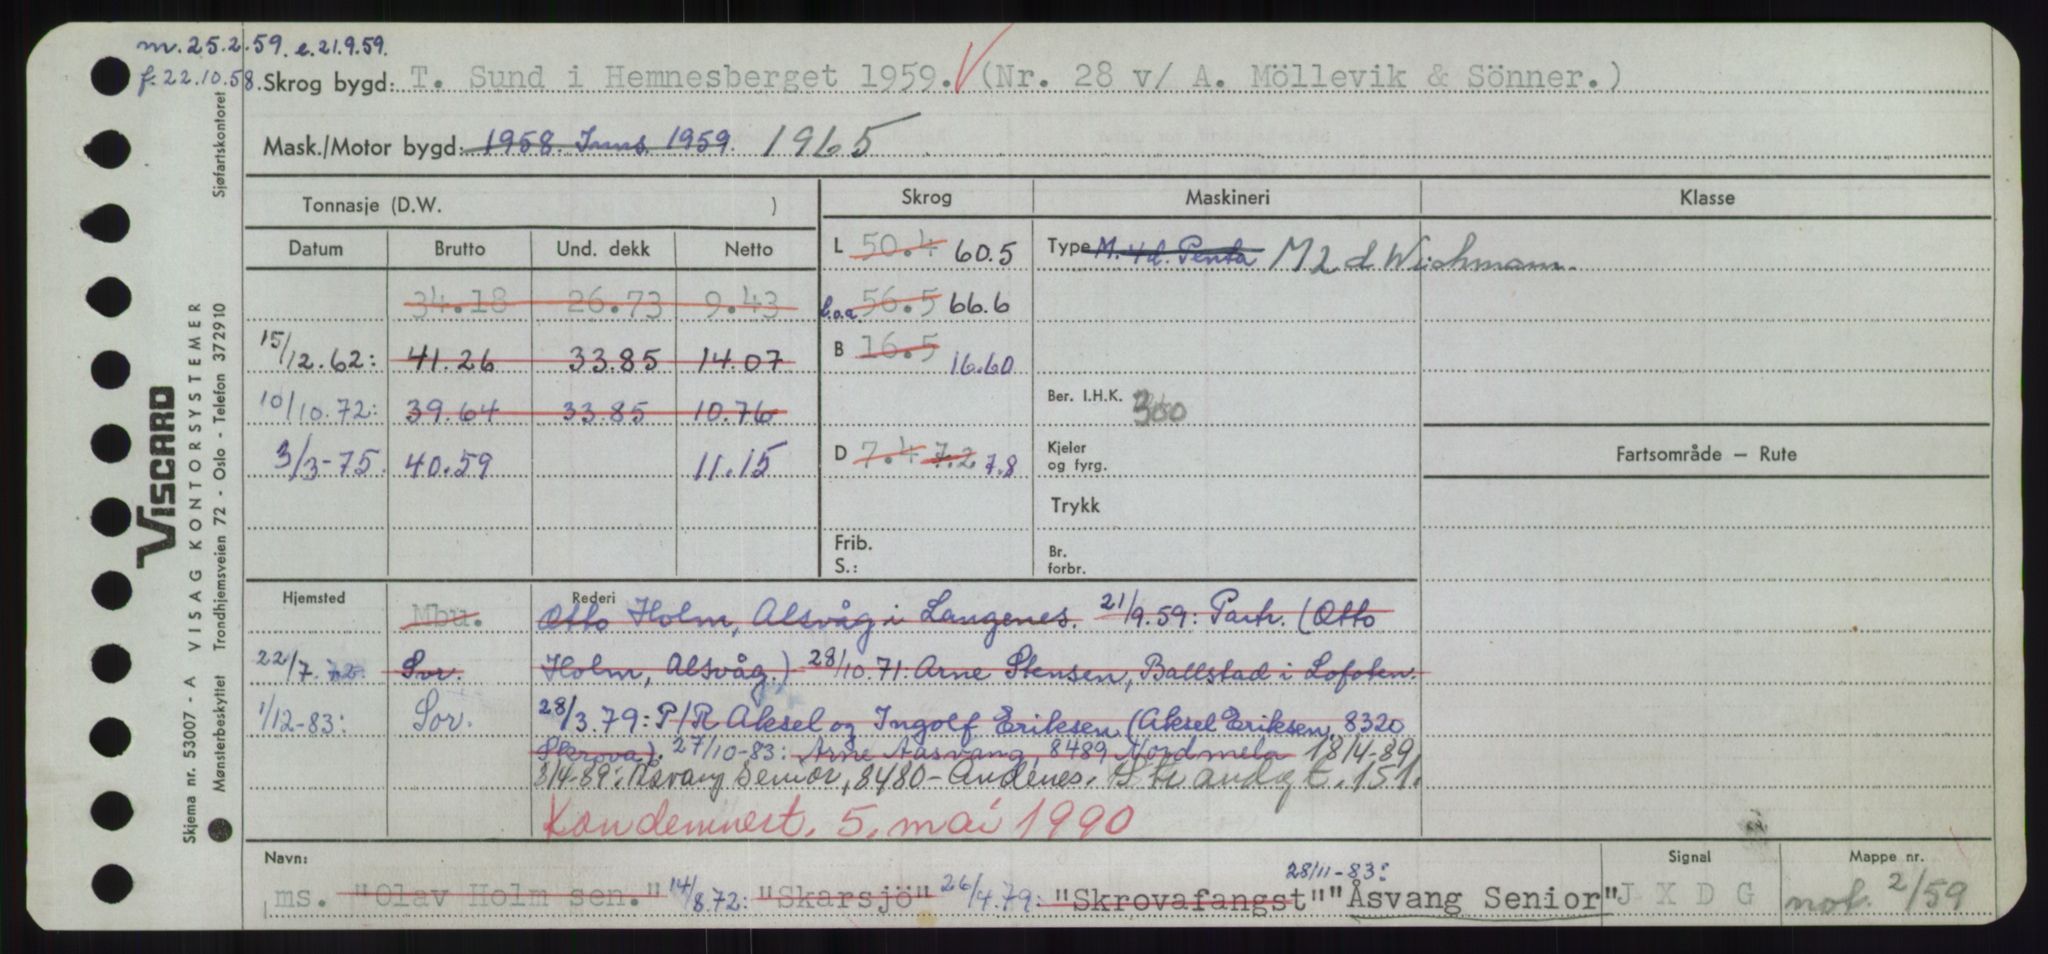 m. 25.2.59. e. 21.9.59.
f. 22.10.58. Skrog bygd: T. Sund i Hemnesberget 1959. (Nr. 28 v/ A. Möllevik & Sönner.)
Mask./Motor bygd: 1958. Inns. 1959. 1965
Tonnasje (D.W. ) Skrog Maskineri Klasse
Datum Brutto Und. dekk Netto L 50.4 60.5 Type M. 4d. Penta M 2 d Wichmann.
34.18 26.73 9.43 l.o.a. 56.5 66.6
15/12.62: 41.26 33.85 14.07 B 16.5 16.60
10/10.72: 39.64 33.85 10.76 Ber. I.H.K. 300
3/3-75. 40.59 11.15 D 7.4 7.2 7.8 Kjeler
og fyrg.
Fartsområde — Rute
Trykk
Frib.
S.:
Br.
forbr.
Hjemsted Mbu. Rederi Otto Holm, Alsvåg i Langenes. 21/9.59: Partr. (Otto
22/7.72. Sor. Holm, Alsvåg.) 28/10.71: Arne Stensen, Ballstad i Lofoten.
1/12-83: Sor. 28/3.79: P/R Aksel og Ingolf Eriksen (Aksel Eriksen, 8320
Skrova). 27/10-83: Arne Aasvang, 8489 Nordmela 18/4-89.
3/4-89: Åsvang Senior, 8480-Andenes. Strandgt. 151.
Kondemnert. 5. mai 1990
Navn: 28/11-83: Signal Mappe nr.
ms. "Olav Holm sen." 14/8.72: "Skarsjö" 26/4.79: "Skrovafangst" "Åsvang Senior" J X D G not. 2/59
Sjøfartskontoret
VISCARD
VISAG KONTORSYSTEMER
Trondhjemsveien 72 - Oslo - Telefon 372910
Skjema nr. 53007 - A
Mønsterbeskyttet